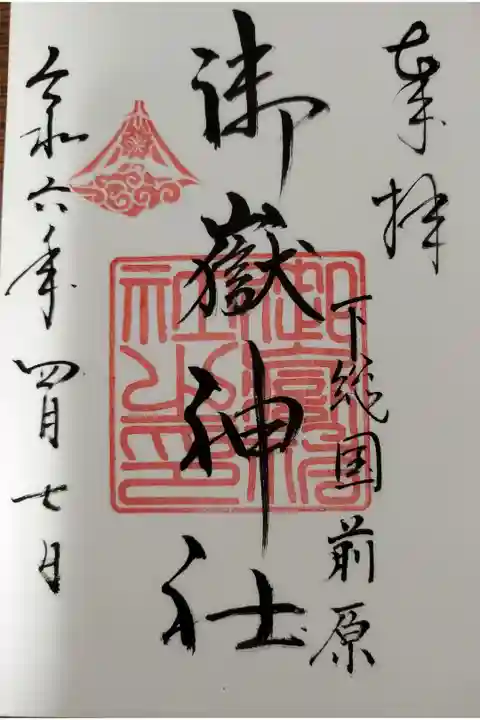 奉拝
下総国前原
御嶽神社
令和六年四月七日